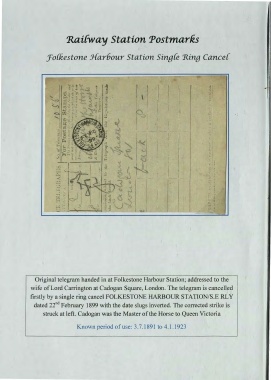 Railway Station Postmarks
Folkestone Harbour Station Single Ring Cancel
Cadogan Square
Original telegram handed in at Folkestone Harbour Station; addressed to the
wife of Lord Carrington at Cadogan Square, London. The telegram is cancelled
firstly by a single ring cancel FOLKESTONE HARBOUR STATION/S.E RLY
dated 22nd February 1899 with the date slugs inverted. The corrected strike is
struck at left. Cadogan was the Master of the Horse to Queen Victoria
Known period of use: 3.7.1891 to 4.1.1923